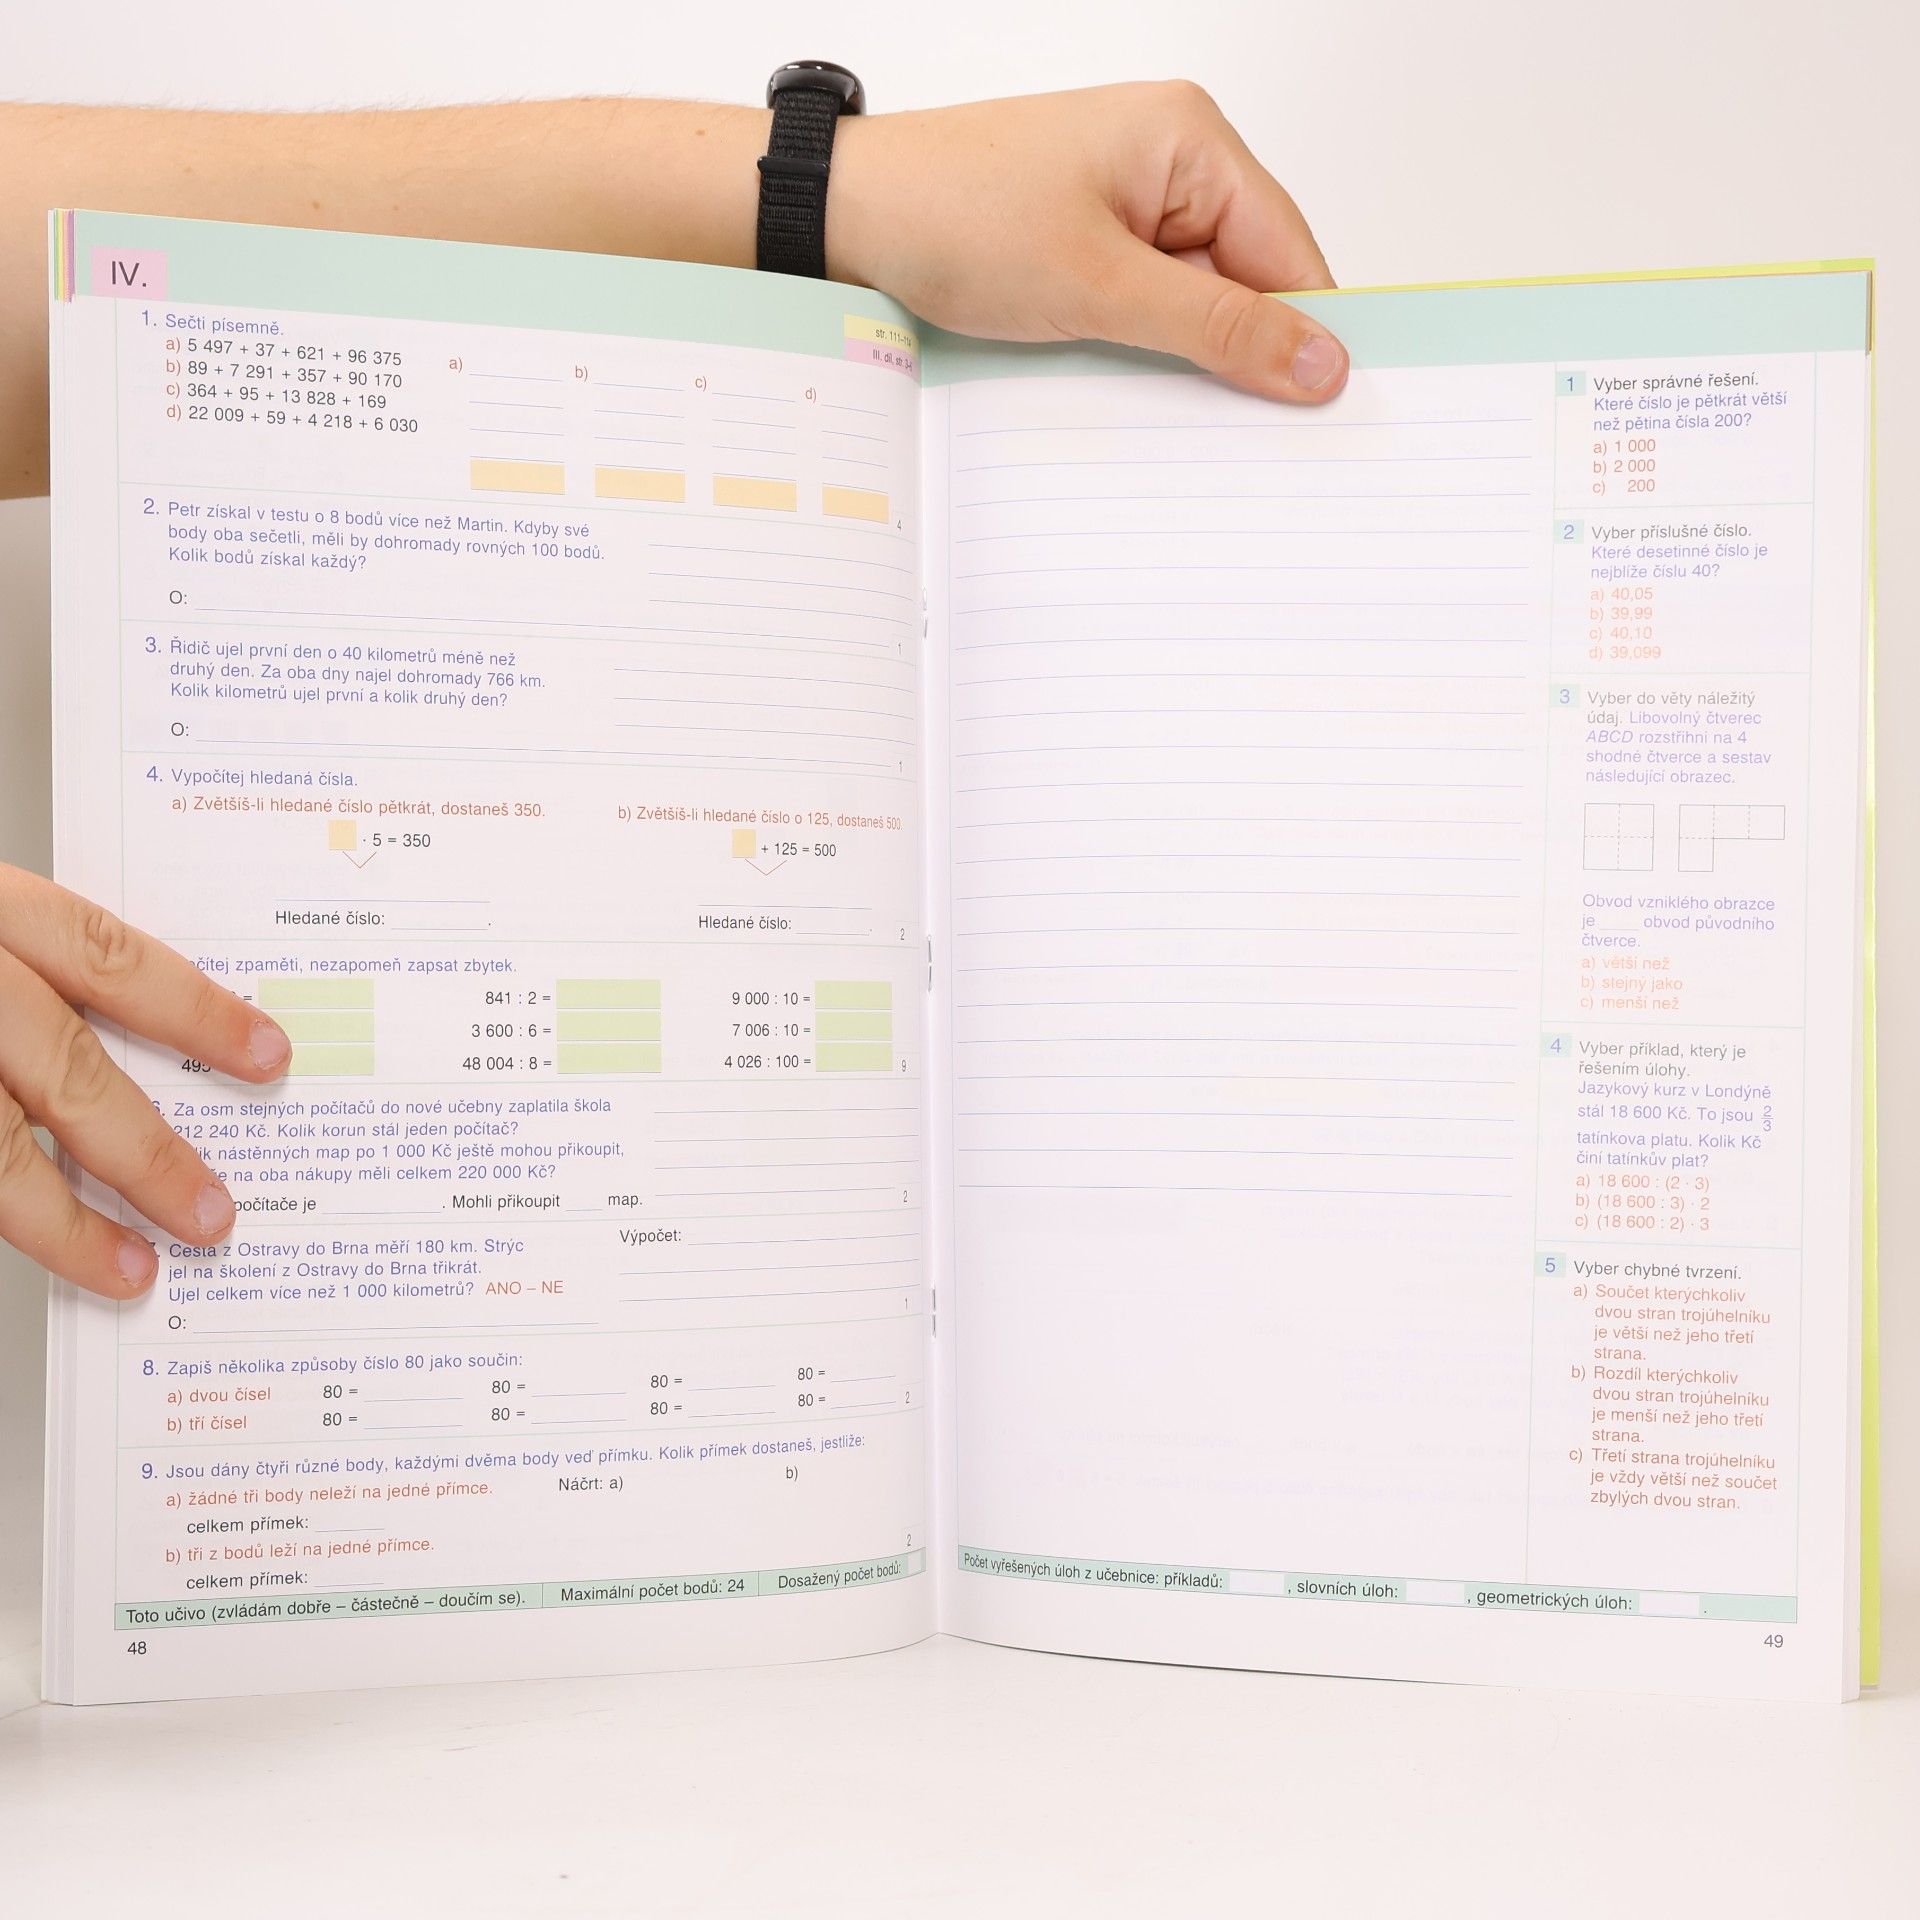 IV.
str. 111–114
III. díl, str. 3–6
1. Sečti písemně.
a) 5 497 + 37 + 621 + 96 375
b) 89 + 7 291 + 357 + 90 170
c) 364 + 95 + 13 828 + 169
d) 22 009 + 59 + 4 218 + 6 030
a) b) c) d)
4
2. Petr získal v testu o 8 bodů více než Martin. Kdyby své
body oba sečetli, měli by dohromady rovných 100 bodů.
Kolik bodů získal každý?
O:
1
3. Řidič ujel první den o 40 kilometrů méně než
druhý den. Za oba dny najel dohromady 766 km.
Kolik kilometrů ujel první a kolik druhý den?
O:
1
4. Vypočítej hledaná čísla.
a) Zvětšíš-li hledané číslo pětkrát, dostaneš 350.
· 5 = 350
Hledané číslo: .
b) Zvětšíš-li hledané číslo o 125, dostaneš 500.
+ 125 = 500
Hledané číslo: .
2
zpaměti, nezapomeň zapsat zbytek.
= 841 : 2 = 9 000 : 10 =
3 600 : 6 = 7 006 : 10 =
48 004 : 8 = 4 026 : 100 =
9
6. Za osm stejných počítačů do nové učebny zaplatila škola
212 240 Kč. Kolik korun stál jeden počítač?
nástěnných map po 1 000 Kč ještě mohou přikoupit,
na oba nákupy měli celkem 220 000 Kč?
počítače je . Mohli přikoupit map.
2
Cesta z Ostravy do Brna měří 180 km. Strýc
jel na školení z Ostravy do Brna třikrát.
Ujel celkem více než 1 000 kilometrů? ANO – NE
O:
Výpočet:
1
8. Zapiš několika způsoby číslo 80 jako součin:
a) dvou čísel 80 = 80 = 80 = 80 =
b) tří čísel 80 = 80 = 80 = 80 =
2
9. Jsou dány čtyři různé body, každými dvěma body veď přímku. Kolik přímek dostaneš, jestliže:
a) žádné tři body neleží na jedné přímce. Náčrt: a) b)
celkem přímek:
b) tři z bodů leží na jedné přímce.
celkem přímek:
2
Toto učivo (zvládám dobře – částečně – doučím se). Maximální počet bodů: 24 Dosažený počet bodů:
48
1 Vyber správné řešení.
Které číslo je pětkrát větší
než pětina čísla 200?
a) 1 000
b) 2 000
c) 200
2 Vyber příslušné číslo.
Které desetinné číslo je
nejblíže číslu 40?
a) 40,05
b) 39,99
c) 40,10
d) 39,099
3 Vyber do věty náležitý
údaj. Libovolný čtverec
ABCD rozstřihni na 4
shodné čtverce a sestav
následující obrazec.
Obvod vzniklého obrazce
je obvod původního
čtverce.
a) větší než
b) stejný jako
c) menší než
4 Vyber příklad, který je
řešením úlohy.
Jazykový kurz v Londýně
stál 18 600 Kč. To jsou 2/3
tatínkova platu. Kolik Kč
činí tatínkův plat?
a) 18 600 : (2 · 3)
b) (18 600 : 3) · 2
c) (18 600 : 2) · 3
5 Vyber chybné tvrzení.
a) Součet kterýchkoliv
dvou stran trojúhelníku
je větší než jeho třetí
strana.
b) Rozdíl kterýchkoliv
dvou stran trojúhelníku
je menší než jeho třetí
strana.
c) Třetí strana trojúhelníku
je vždy větší než součet
zbylých dvou stran.
Počet vyřešených úloh z učebnice: příkladů: , slovních úloh: , geometrických úloh: .
49